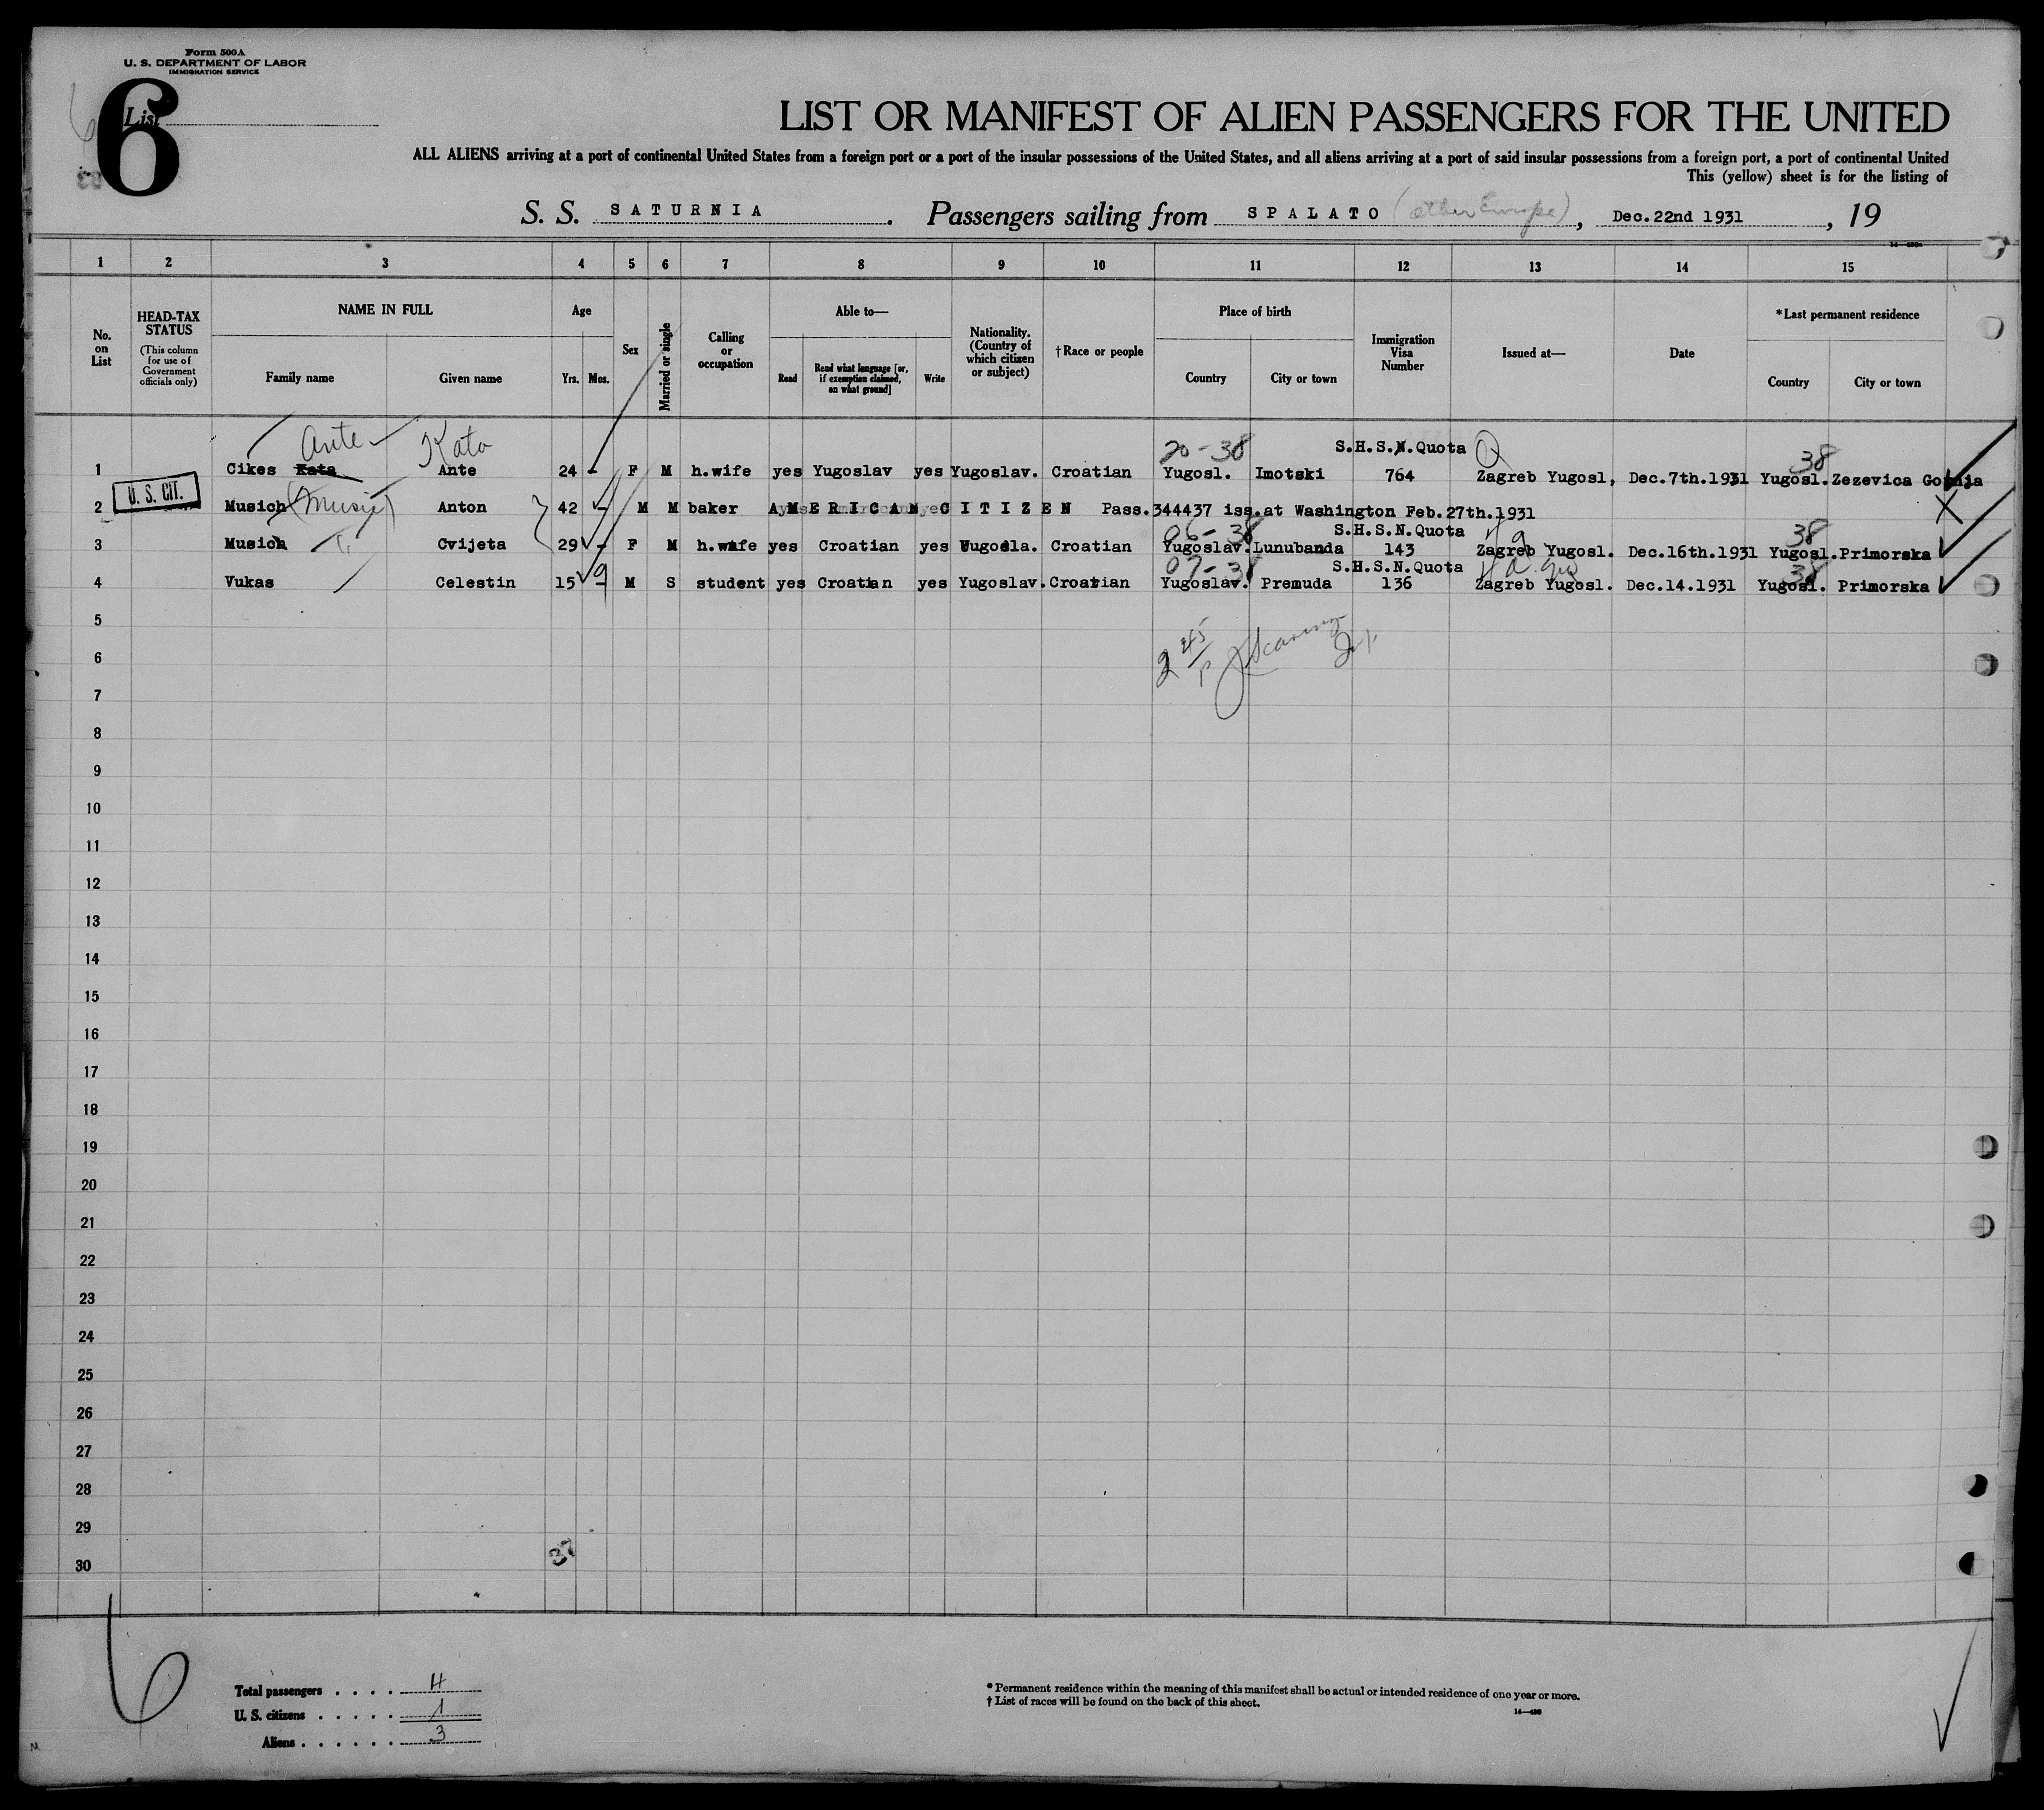 Form 500A
U. S. DEPARTMENT OF LABOR
IMMIGRATION SERVICE
6
List
LIST OR MANIFEST OF ALIEN PASSENGERS FOR THE UNITED
ALL ALIENS arriving at a port of continental United States from a foreign port or a port of the insular possessions of the United States, and all aliens arriving at a port of said insular possessions from a foreign port, a port of continental United
This (yellow) sheet is for the listing of
S. S. SATURNIA. Passengers sailing from SPALATO (other Europe), Dec.22nd 1931, 19
1 2 3 4 5 6 7 8 9 10 11 12 13 14 15
No. on List
HEAD-TAX STATUS
(This column for use of Government officials only)
NAME IN FULL
Family name Given name
Age
Yrs. Mos.
Sex
Married or single
Calling or occupation
Able to—
Read Read what language [or, if exemption claimed, on what ground] Write
Nationality. (Country of which citizen or subject)
†Race or people
Place of birth
Country City or town
Immigration Visa Number
Issued at—
Date
*Last permanent residence
Country City or town
Ante Kata 20-38 S.H.S.N.Quota Q 38
1 Cikes Kata Ante 24 - F M h.wife yes Yugoslav yes Yugoslav. Croatian Yugosl. Imotski 764 Zagreb Yugosl, Dec.7th.1931 Yugosl. Zezevica Gornja
2 U. S. CIT. Musich (Music) Anton 42 - M M baker AMERICAN CITIZEN Pass.344437 iss.at Washington Feb.27th.1931 X
06-38 S.H.S.N.Quota 38
3 Musich Cvijeta 29 - F M h.wife yes Croatian yes Yugosla. Croatian Yugoslav. Lunubanda 143 Zagreb Yugosl. Dec.16th.1931 Yugosl. Primorska
07-38 S.H.S.N.Quota 38
4 Vukas Celestin 15 9 M S student yes Croatian yes Yugoslav. Croatian Yugoslav. Premuda 136 Zagreb Yugosl. Dec.14.1931 Yugosl. Primorska
5
6
7
8
9
10
11
12
13
14
15
16
17
18
19
20
21
22
23
24
25
26
27
28
29
30
37
6
Total passengers . . . . 4
U. S. citizens . . . . . 1
Aliens . . . . . . 3
* Permanent residence within the meaning of this manifest shall be actual or intended residence of one year or more.
† List of races will be found on the back of this sheet.